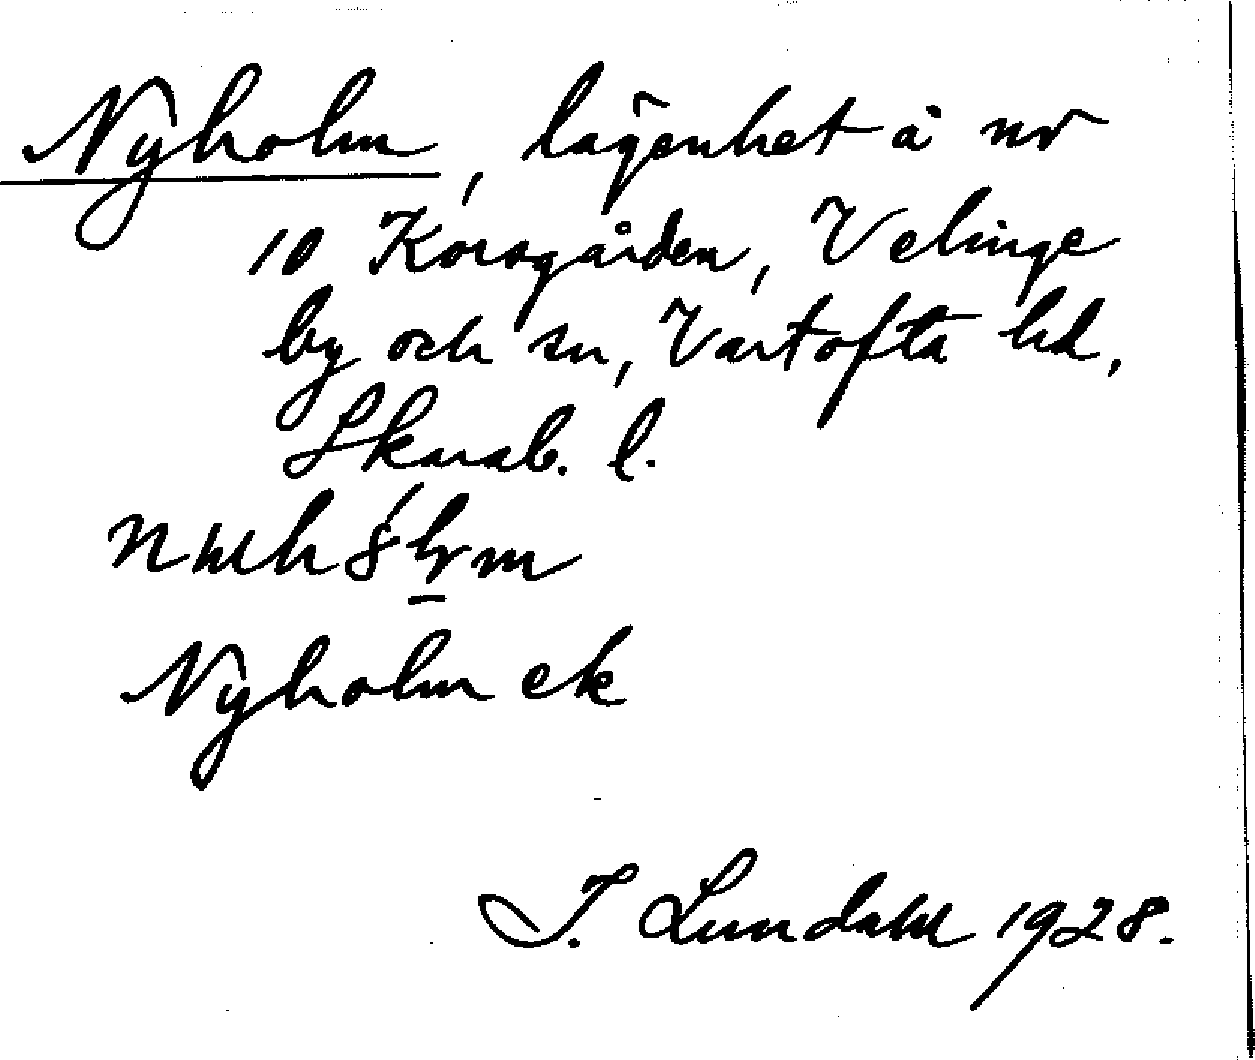 Nyholm, lägenhet å nr
10 Korsgården, Velinge
by och sn, Vartofta hd,
Skarab. l.
Nyholm ek
I. Lundahl 1928.